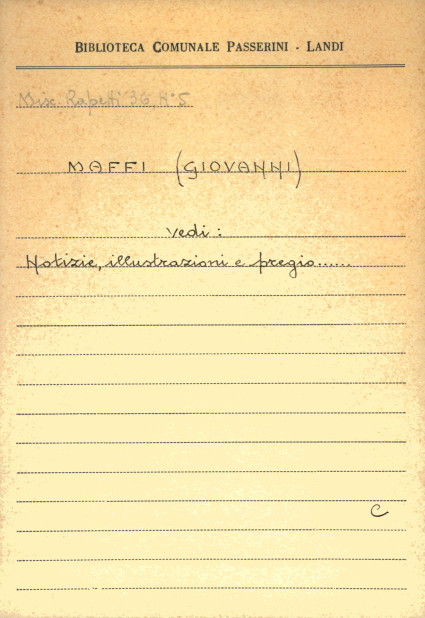 BIBLIOTECA COMUNALE PASSERINI - LANDI
Misc. Rapetti 36, N° 5
MAFFI (GIOVANNI)
Vedi :
Notizie, illustrazioni e pregio......
C